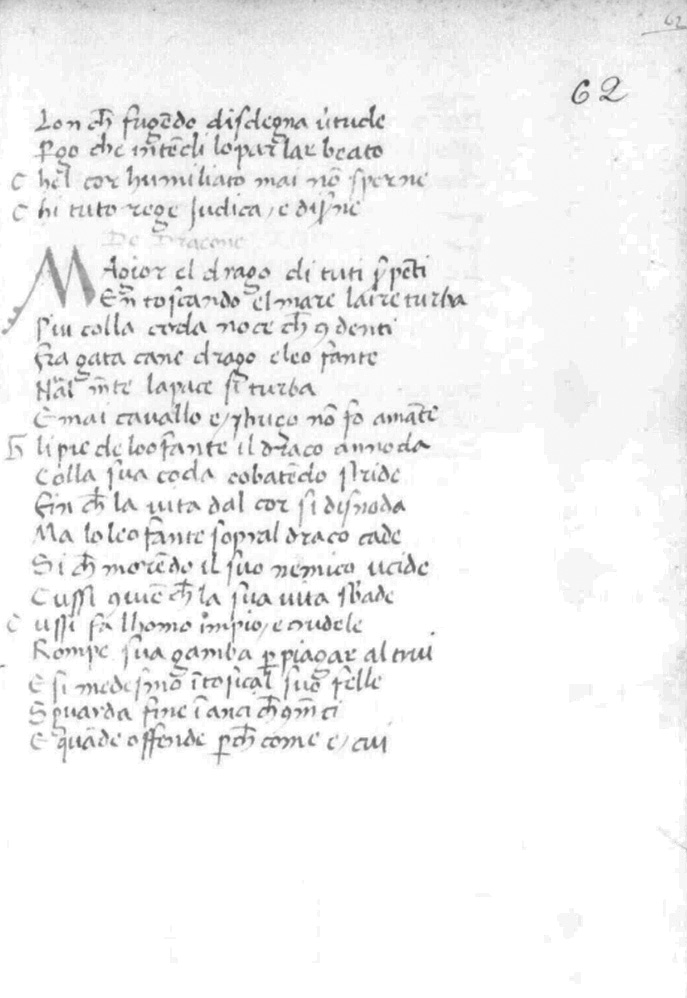 62
62
Lon ch̄ fugẽdo disdegna v̓tude
P̱go che in̄tẽdi lo parlar beato
C hel cor humiliato mai nõ sperne
C hi tuto rege Judica, e disc̓ne
De Dracone
Magior el drago di tuti s̓pẽti
E n̄ toscando el mare laire turba
Piu colla coda noce ch̄ ꝯ denti
Fra gata cane drago eleofante
Nāl mẽte lapace si turba
E mai cavallo e, gruco nõ fo amãte
H̄ li pie deloofante il draco annoda
Colla sua coda cobatẽdo stride
Fin ch̄ la vita dal cor si disnoda
Ma lo leofante sopral draco cade
Si ch̄ morẽdo il suo nemico ucide
Cussi ꝯuiẽ ch̄ la sua vita sbade
C ussi fa lhomo impio, e crudele
Rompe sua gamba ꝑ piagar altrui
E si medesmo ĩtosical suo felle
Sguarda fine ĩanci ch̄ ꝯmĩci
E quãde offende ꝑch̄ come e, cui